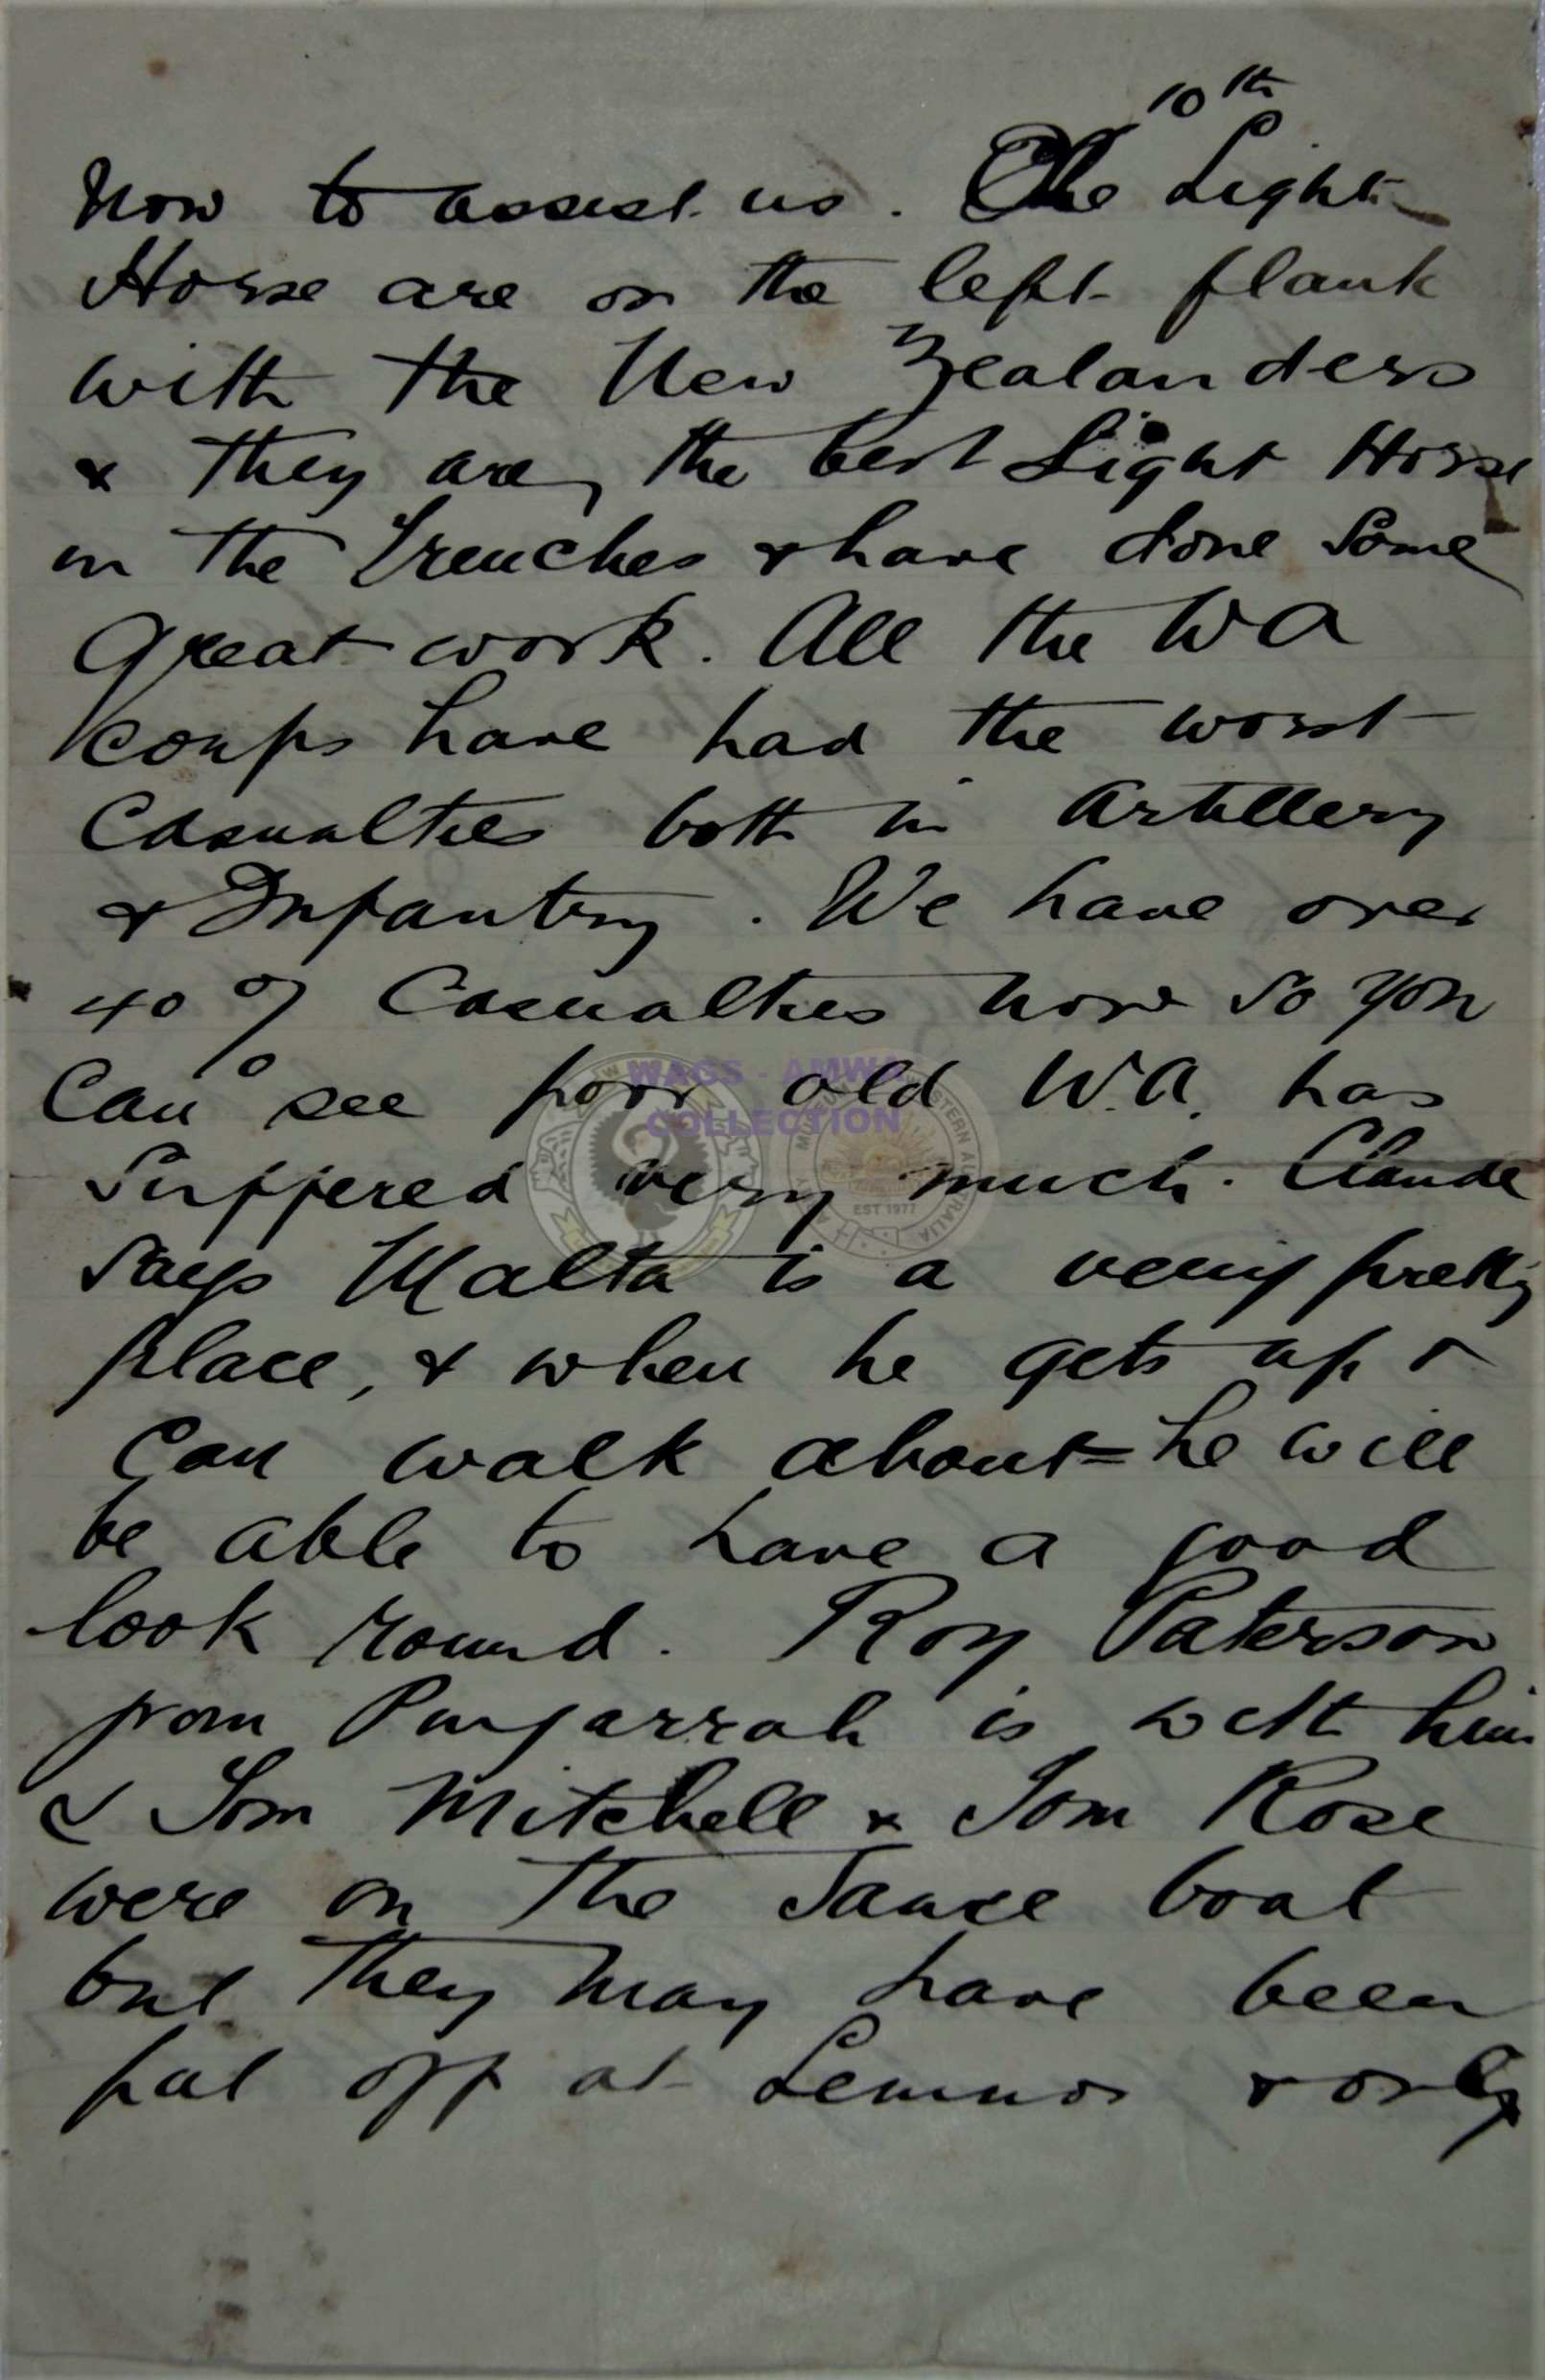 10th
now to assist us. The Light
Horse are on the left flank
with the New Zealanders
& they are, the best Light Horse
in the Trenches & have done some
great work. All the WA
coups have had the worst
Casualties both in Artillery
& Infantry. We have over
40% Casualties now so you
Can see poor old W.A. has
suffered very much. Claude
says Malta is a very pretty
place, & when he gets up &
can walk about he will
be able to have a good
look round. Roy Paterson
from Pinjarrah is with him
& Tom Mitchell & Tom Rose
were on the same boat
but they may have been
put off at Lemnos & only
WAGS - AMWA
COLLECTION
EST 1977